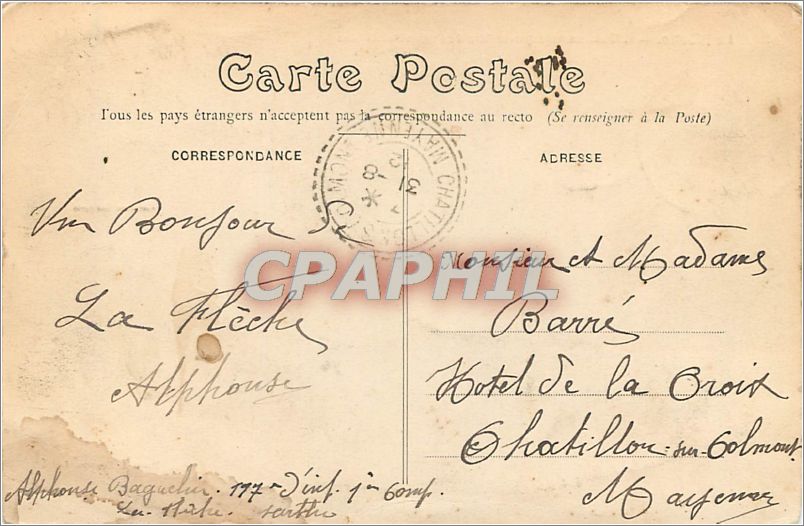 Carte Postale
Tous les pays étrangers n'acceptent pas la correspondance au recto (Se renseigner à la Poste)
CORRESPONDANCE
ADRESSE
CHATILLON MAYENNE
31 8
Un Bonjour de
La Flèche
Alphonse
Alphonse Baguelin. 117e d'inf. 1ère Comp.
La Flèche Sarthe
Monsieur et Madame
Barré
Hotel de la Croix
Chatillon-sur-Colmont
Mayenne
CPAPHIL